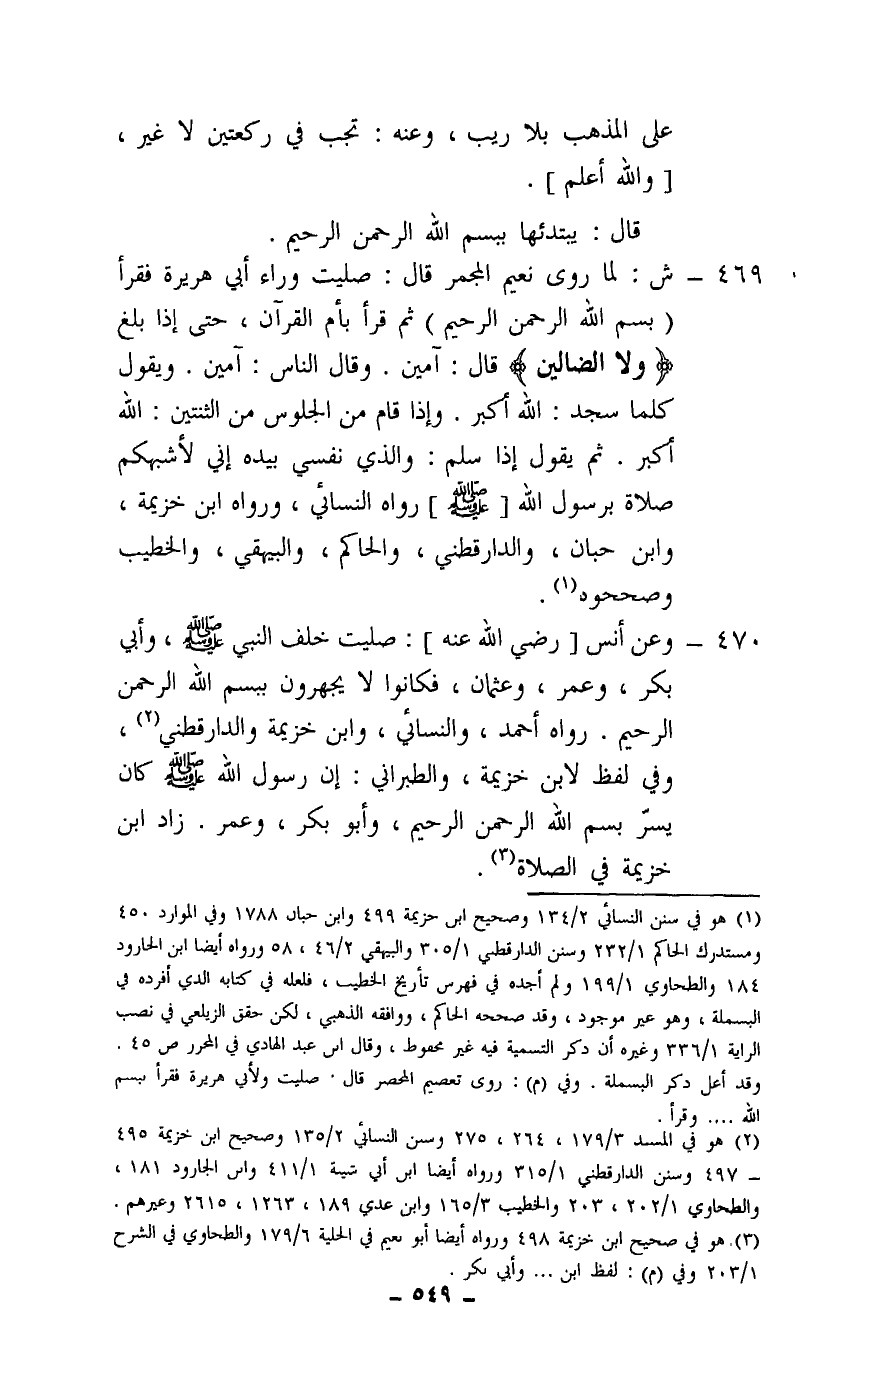 على المذهب بلا ريب ، وعنه : تجب في ركعتين لا غير ،
[ والله أعلم ] .
قال : يبتدئها ببسم الله الرحمن الرحيم .
٤٦٩ – ش : لما روى نعيم المجمر قال : صليت وراء أبي هريرة فقرأ
( بسم الله الرحمن الرحيم ) ثم قرأ بأم القرآن ، حتى إذا بلغ
﴿ ولا الضالين ﴾ قال : آمين . وقال الناس : آمين . ويقول
كلما سجد : الله أكبر . وإذا قام من الجلوس من الثنتين : الله
أكبر . ثم يقول إذا سلم : والذي نفسي بيده إني لأشبهكم
صلاة برسول الله [ ﷺ ] رواه النسائي ، ورواه ابن خزيمة ،
وابن حبان ، والدارقطني ، والحاكم ، والبيهقي ، والخطيب
وصححوه(١) .
٤٧٠ – وعن أنس [ رضي الله عنه ] : صليت خلف النبي ﷺ ، وأبي
بكر ، وعمر ، وعثمان ، فكانوا لا يجهرون ببسم الله الرحمن
الرحيم . رواه أحمد ، والنسائي ، وابن خزيمة والدارقطني(٢) ،
وفي لفظ لابن خزيمة ، والطبراني : إن رسول الله ﷺ كان
يسرّ بسم الله الرحمن الرحيم ، وأبو بكر ، وعمر . زاد ابن
خزيمة في الصلاة(٣) .
(١) هو في سنن النسائي ١٣٤/٢ وصحيح ابن خزيمة ٤٩٩ وابن حبان ١٧٨٨ وفي الموارد ٤٥٠
ومستدرك الحاكم ٢٣٢/١ وسنن الدارقطني ٣٠٥/١ والبيهقي ٤٦/٢ ، ٥٨ ورواه أيضا ابن الجارود
١٨٤ والطحاوي ١٩٩/١ ولم أجده في فهرس تأريخ الخطيب ، فلعله في كتابه الذي أفرده في
البسملة ، وهو غير موجود ، وقد صححه الحاكم ، ووافقه الذهبي ، لكن حقق الزيلعي في نصب
الراية ٣٣٦/١ وغيره أن ذكر التسمية فيه غير محفوظ ، وقال ابن عبد الهادي في المحرر ص ٤٥ .
وقد أعل ذكر البسملة . وفي (م) : روى تعصيم المخصر قال · صليت ولأبي هريرة فقرأ بسم
الله .... وقرأ .
(٢) هو في المسند ١٧٩/٣ ، ٢٦٤ ، ٢٧٥ وسنن النسائي ١٣٥/٢ وصحيح ابن خزيمة ٤٩٥
– ٤٩٧ وسنن الدارقطني ٣١٥/١ ورواه أيضا ابن أبي شيبة ٤١١/١ وابن الجارود ١٨١ ،
والطحاوي ٢٠٢/١ ، ٢٠٣ والخطيب ١٦٥/٣ وابن عدي ١٨٩ ، ١٢٦٣ ، ٢٦١٥ وغيرهم .
(٣) هو في صحيح ابن خزيمة ٤٩٨ ورواه أيضا أبو نعيم في الحلية ١٧٩/٦ والطحاوي في الشرح
٢٠٣/١ وفي (م) : لفظ ابن ... وأبي بكر .
– ٥٤٩ –